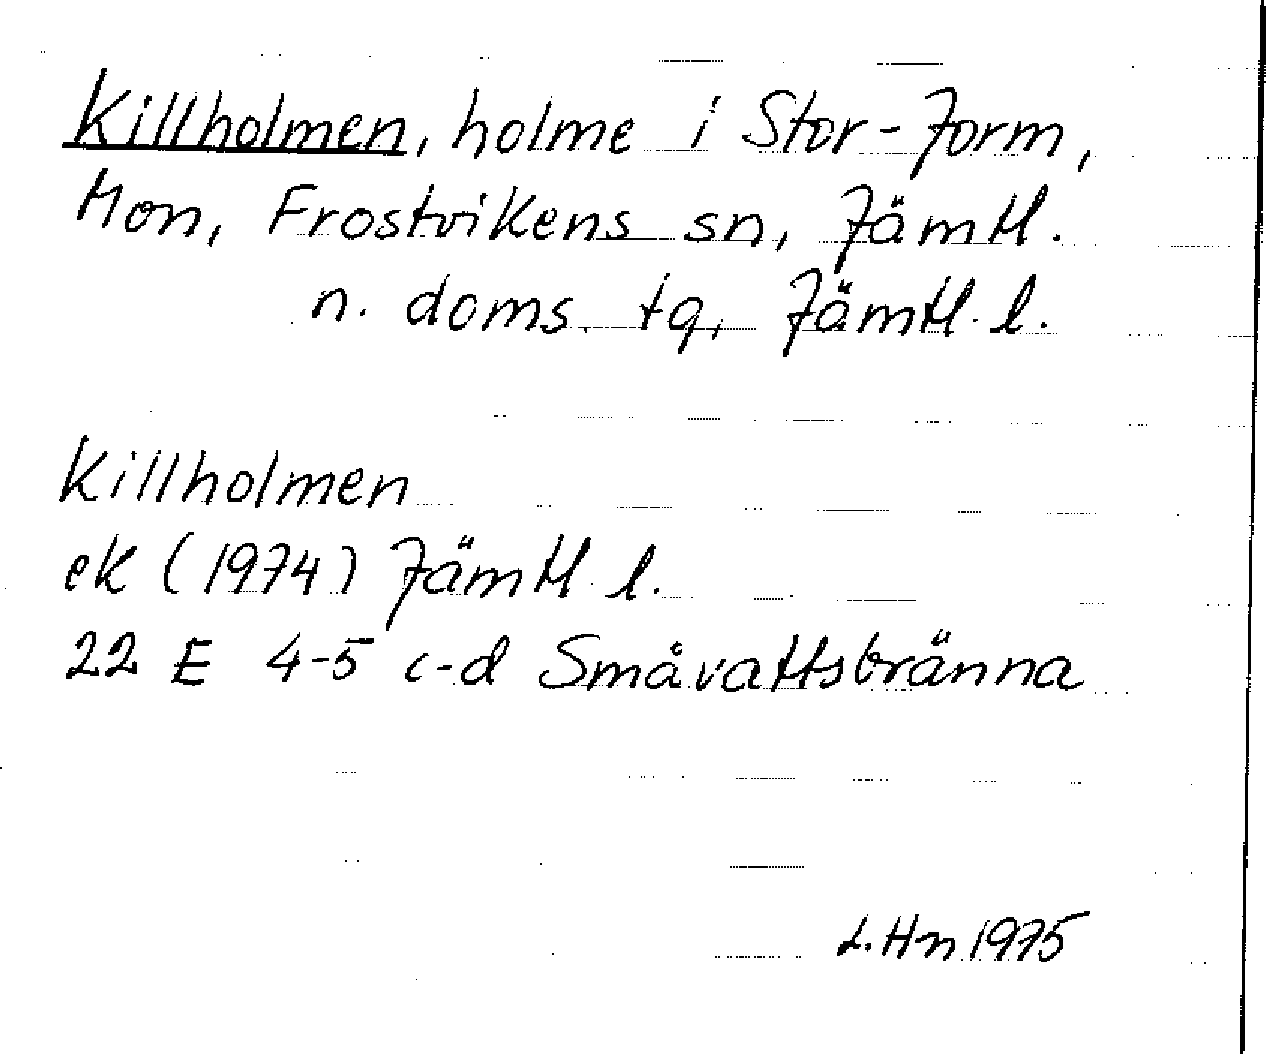 Killholmen, holme i Stor-Jorm,
Mon, Frostvikens sn, Jämtl.
n. doms. tg, Jämtl. l.
Killholmen
ek (1974) Jämtl. l.
22 E 4-5 c-d Småvattsbränna
L.Hn 1975